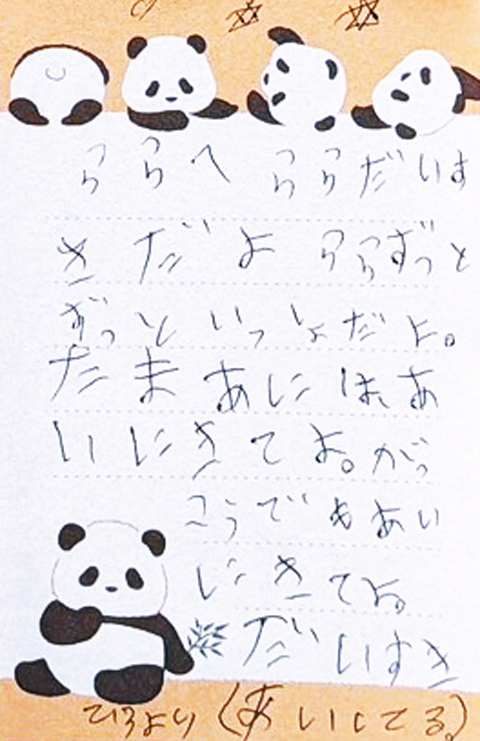 ららへ ららだいす
きだよ ららずっと
ずっといっしょだよ。
たまあには、あ
いにきてよ。がっ
こうでもあい
にきてよ。
だいすき
ひろより(あいしてる。)